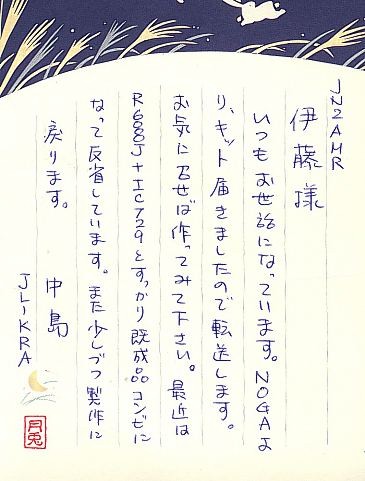 JN2AMR
伊藤様
いつもお世話になっています。NOGAよ
り、キット届きましたので転送します。
お気に召せば作ってみて下さい。最近は
R688J+IC729とすっかり既成品コンビに
なって反省しています。また少しづつ製作に
戻ります。 中島
JL1KRA
月兎